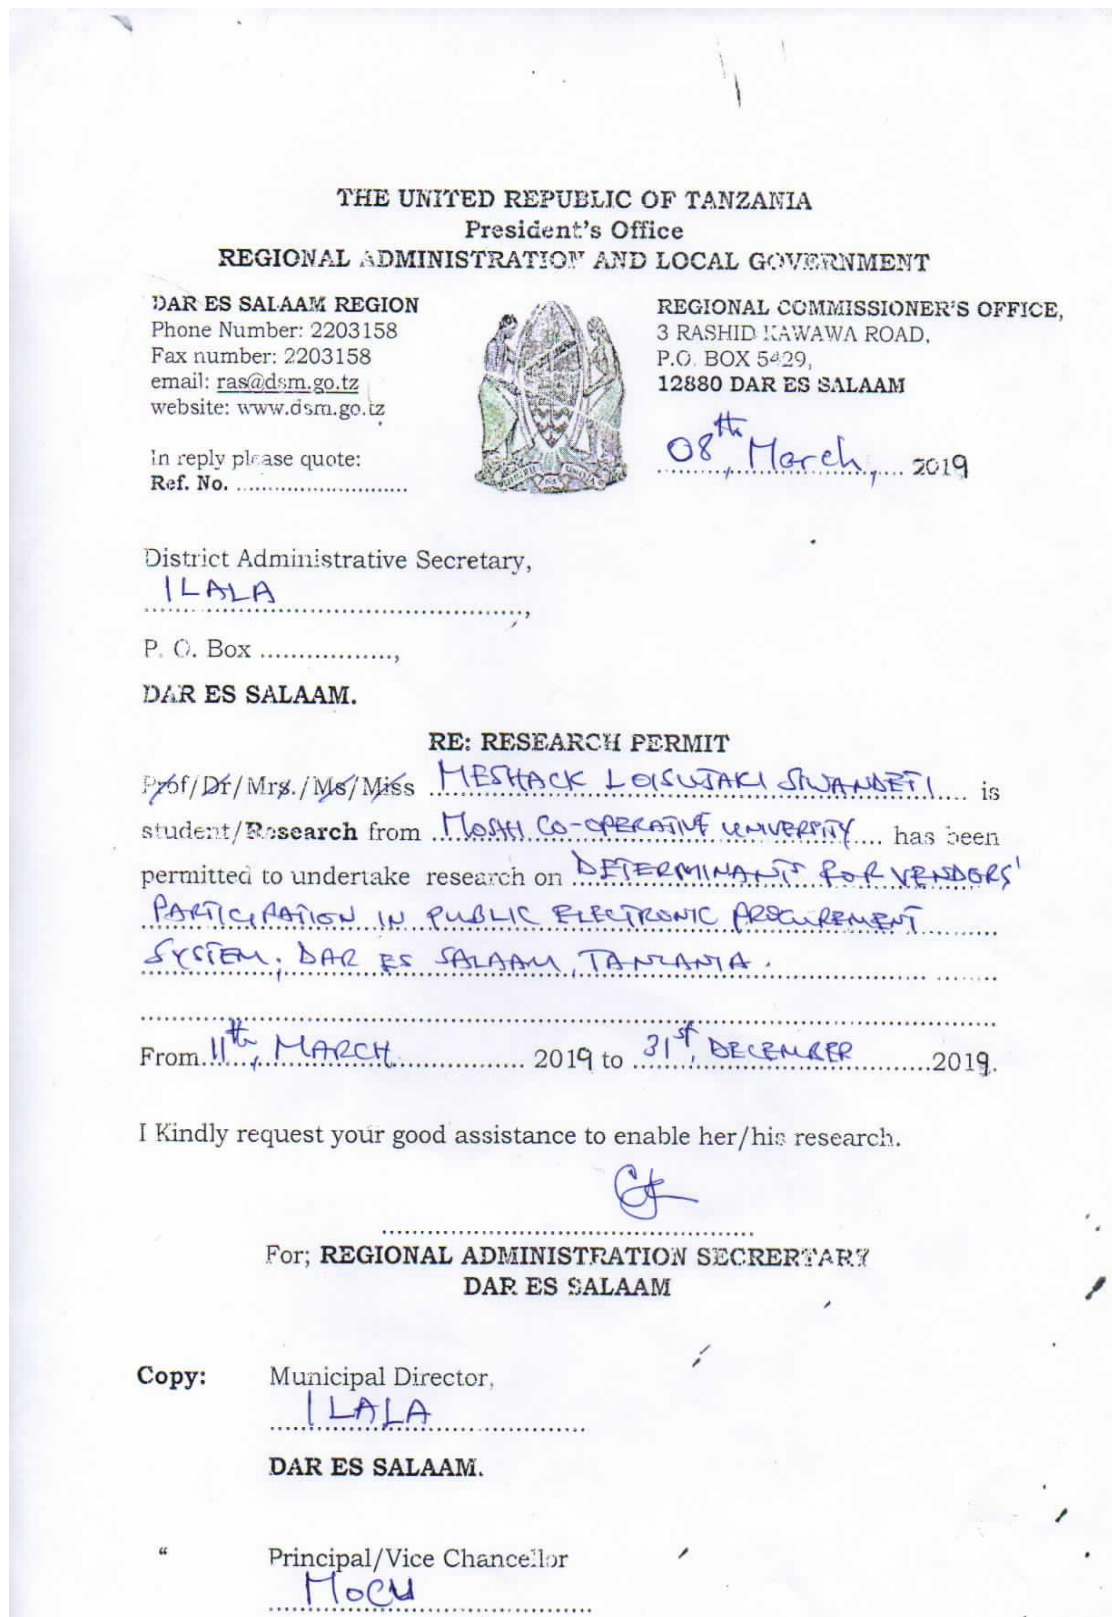 THE UNITED REPUBLIC OF TANZANIA
President's Office
REGIONAL ADMINISTRATION AND LOCAL GOVERNMENT
DAR ES SALAAM REGION
Phone Number: 2203158
Fax number: 2203158
email: ras@dsm.go.tz
website: www.dsm.go.tz
In reply please quote:
Ref. No. ..........................
REGIONAL COMMISSIONER'S OFFICE,
3 RASHID KAWAWA ROAD,
P.O. BOX 5429,
12880 DAR ES SALAAM
08th, March, 2019
District Administrative Secretary,
ILALA
P. O. Box .................,
DAR ES SALAAM.
RE: RESEARCH PERMIT
Prof/Dr/Mrs./Ms/Miss MESHACK is
student/Research from MOSHI CO-OPERATIVE UNIVERSITY has been
permitted to undertake research on DETERMINANTS FOR VENDORS'
PARTICIPATION IN PUBLIC ELECTRONIC PROCUREMENT
SYSTEM, DAR ES SALAAM, TANZANIA.
From 11th, MARCH 2019 to 31st, DECEMBER 2019.
I Kindly request your good assistance to enable her/his research.
For; REGIONAL ADMINISTRATION SECRERTARY
DAR ES SALAAM
Copy: Municipal Director,
ILALA
DAR ES SALAAM.
“ Principal/Vice Chancellor
MoCU